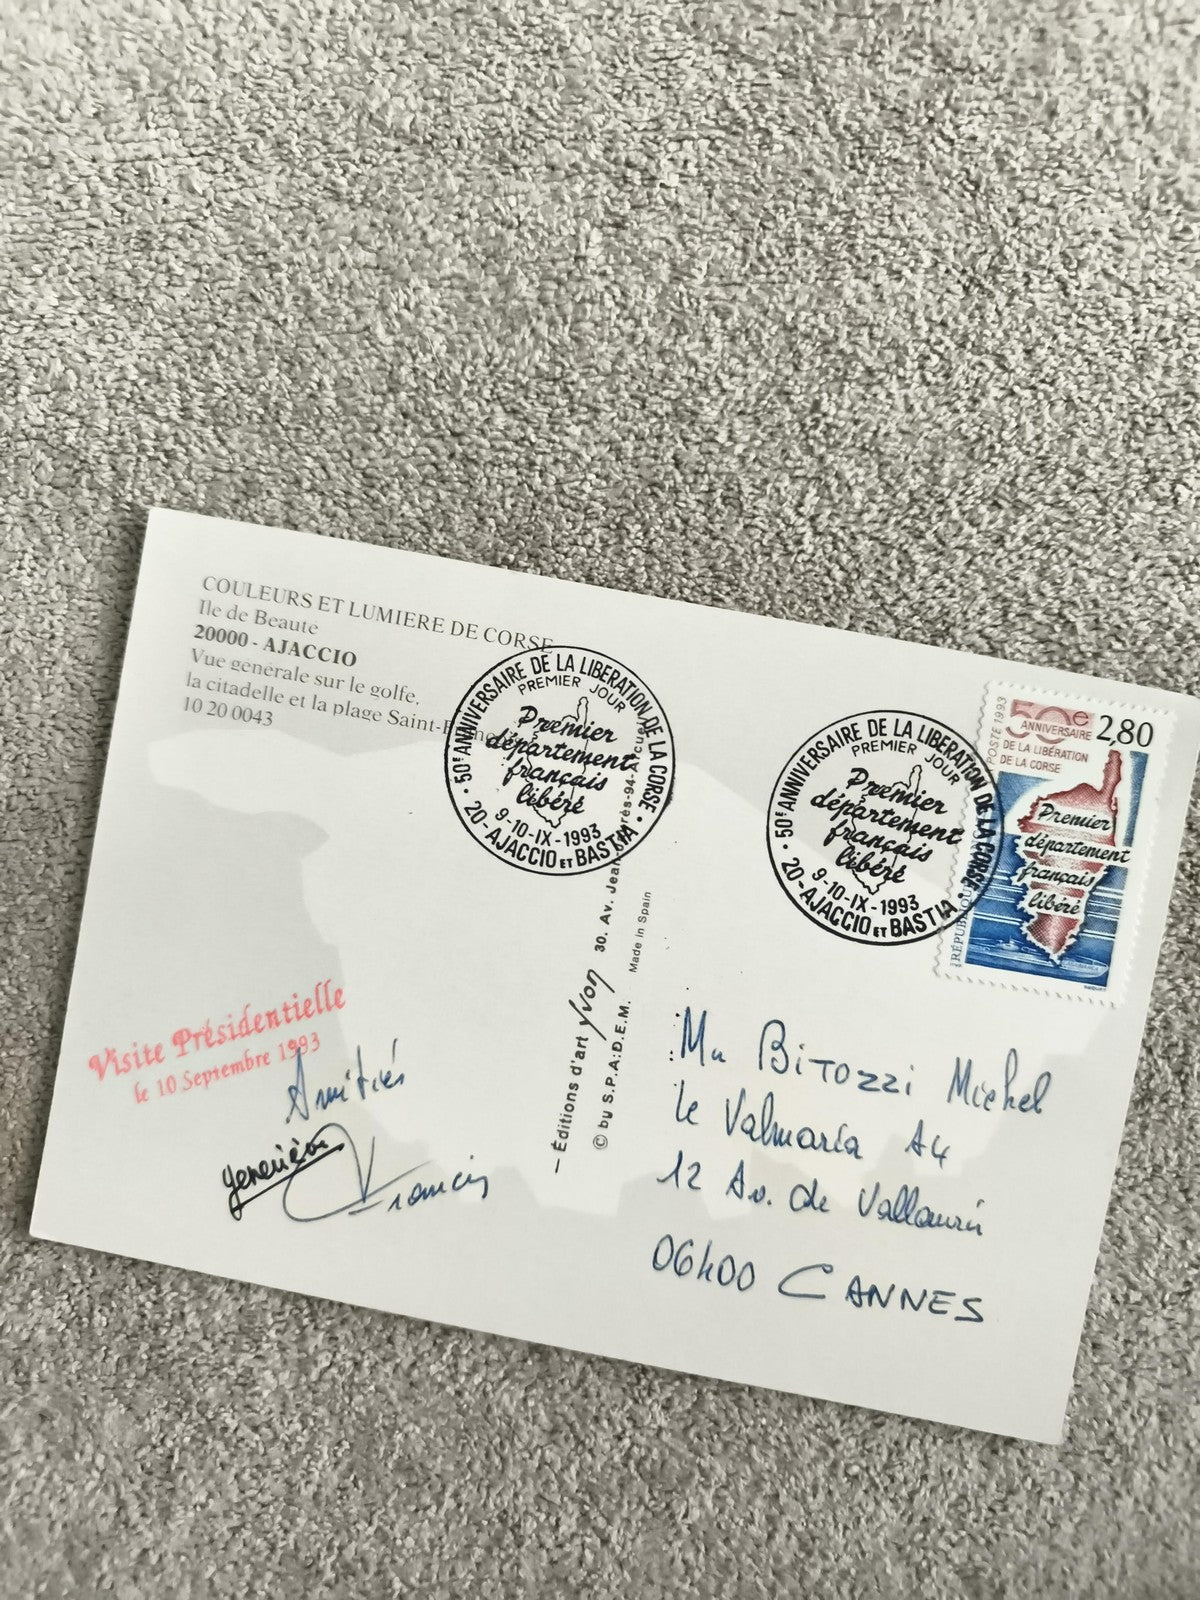 COULEURS ET LUMIERE DE CORSE
Ile de Beaute
20000 - AJACCIO
Vue generale sur le golfe,
la citadelle et la plage Saint-
10 20 0043
50e ANNIVERSAIRE DE LA LIBERATION DE LA CORSE
PREMIER JOUR
Premier
département
français
libéré
9-10-IX-1993
20-AJACCIO ET BASTIA
50e ANNIVERSAIRE DE LA LIBERATION DE LA CORSE
PREMIER JOUR
Premier
département
français
libéré
9-10-IX-1993
20-AJACCIO ET BASTIA
POSTE 1993
50e
ANNIVERSAIRE
DE LA LIBÉRATION
DE LA CORSE
2,80
Premier
département
français
libéré
Visite Présidentielle
le 10 Septembre 1993
Amitiés
Geneviève
Francis
- Éditions d'art Yvon 30. Av. Jean
© by S.P.A.D.E.M. Made in Spain
Mr BITOZZI Michel
Le Valmaria A4
12 Av. de Vallauris
06400 CANNES